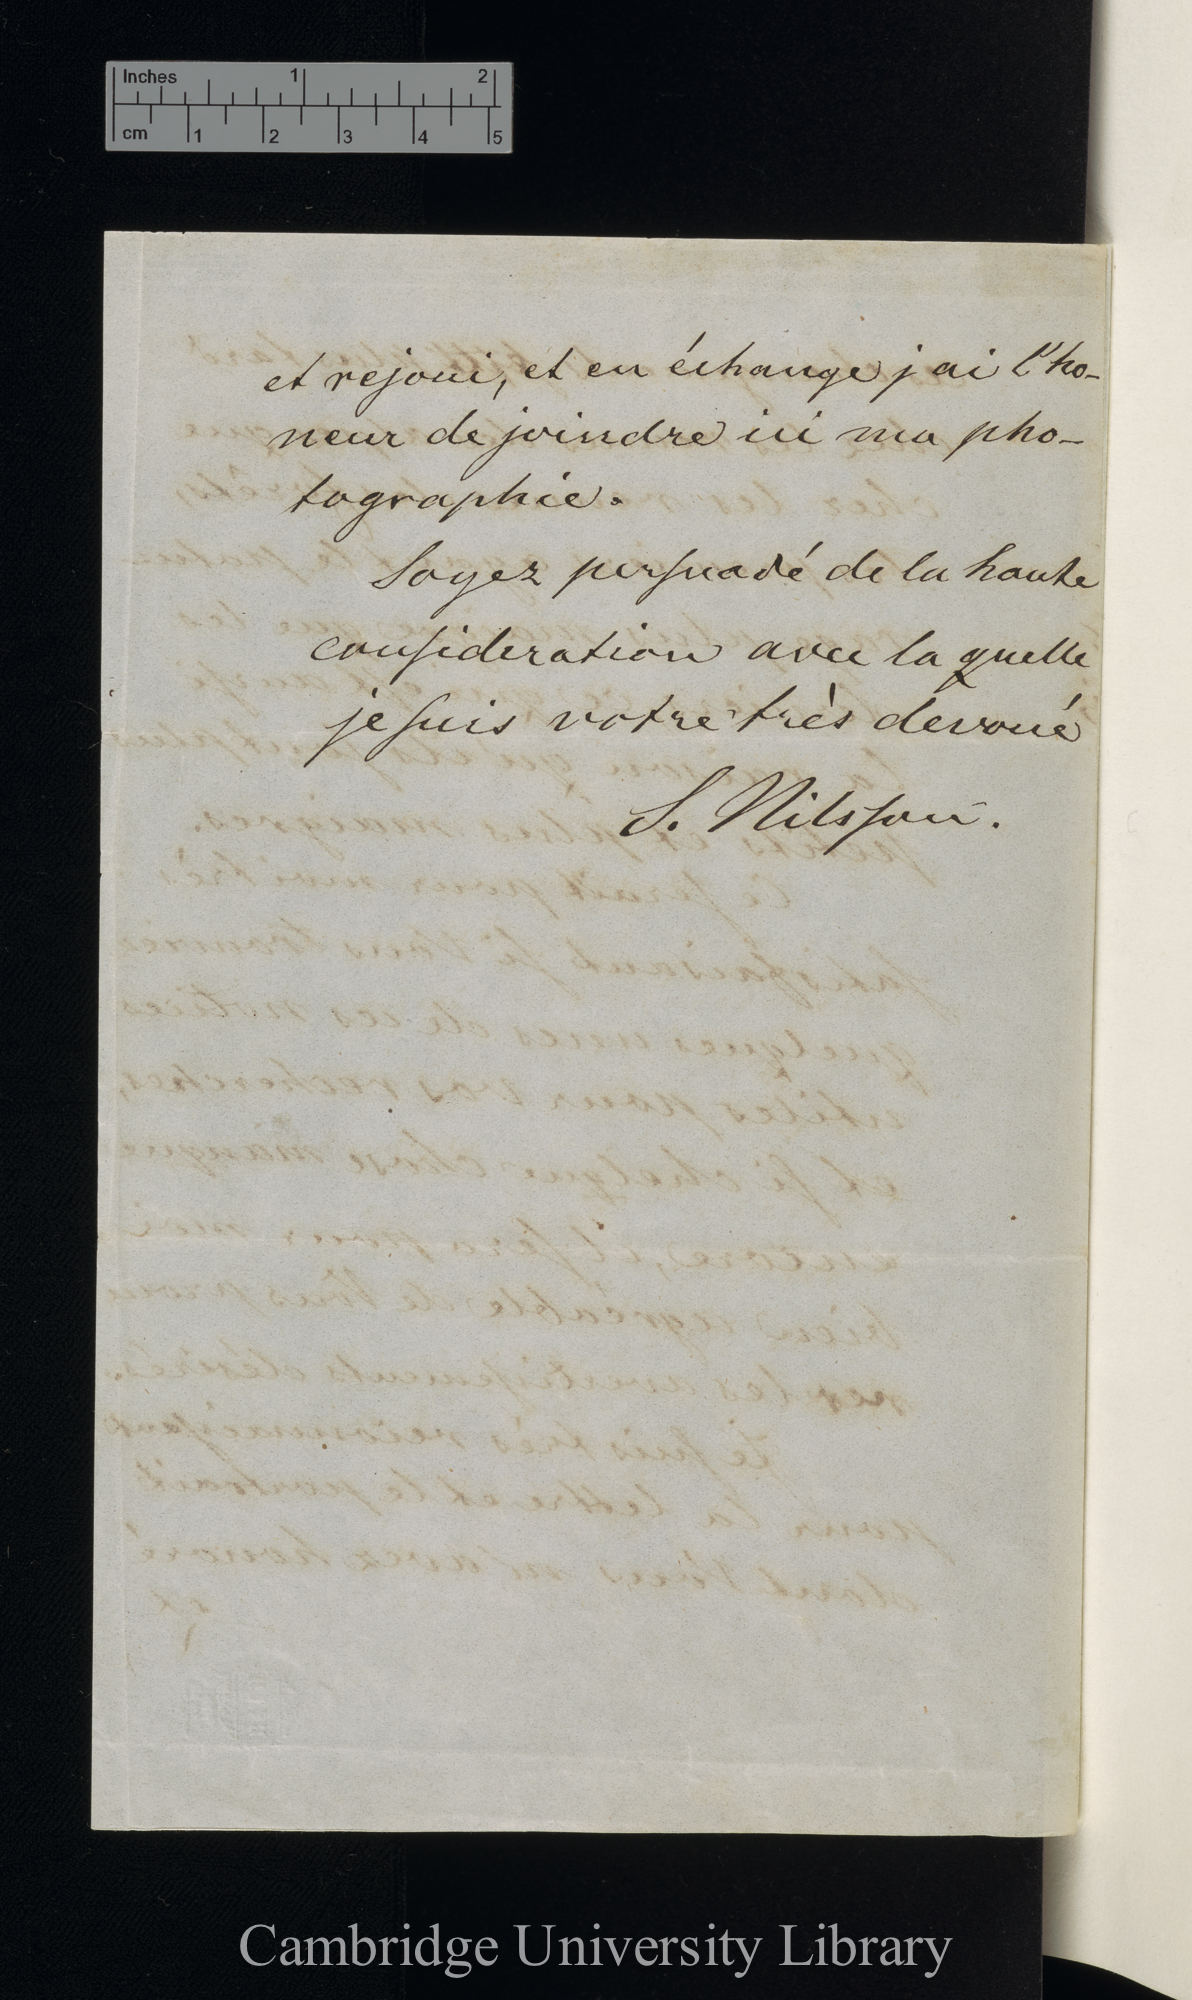 Inches 1 2
cm 1 2 3 4 5
et rejoui, et en échange j'ai l'ho-
neur de joindre ici ma pho-
tographie.
Soyez persuadé de la haute
consideration avec la quelle
je suis votre très devoué
S. Nilsson.
Cambridge University Library